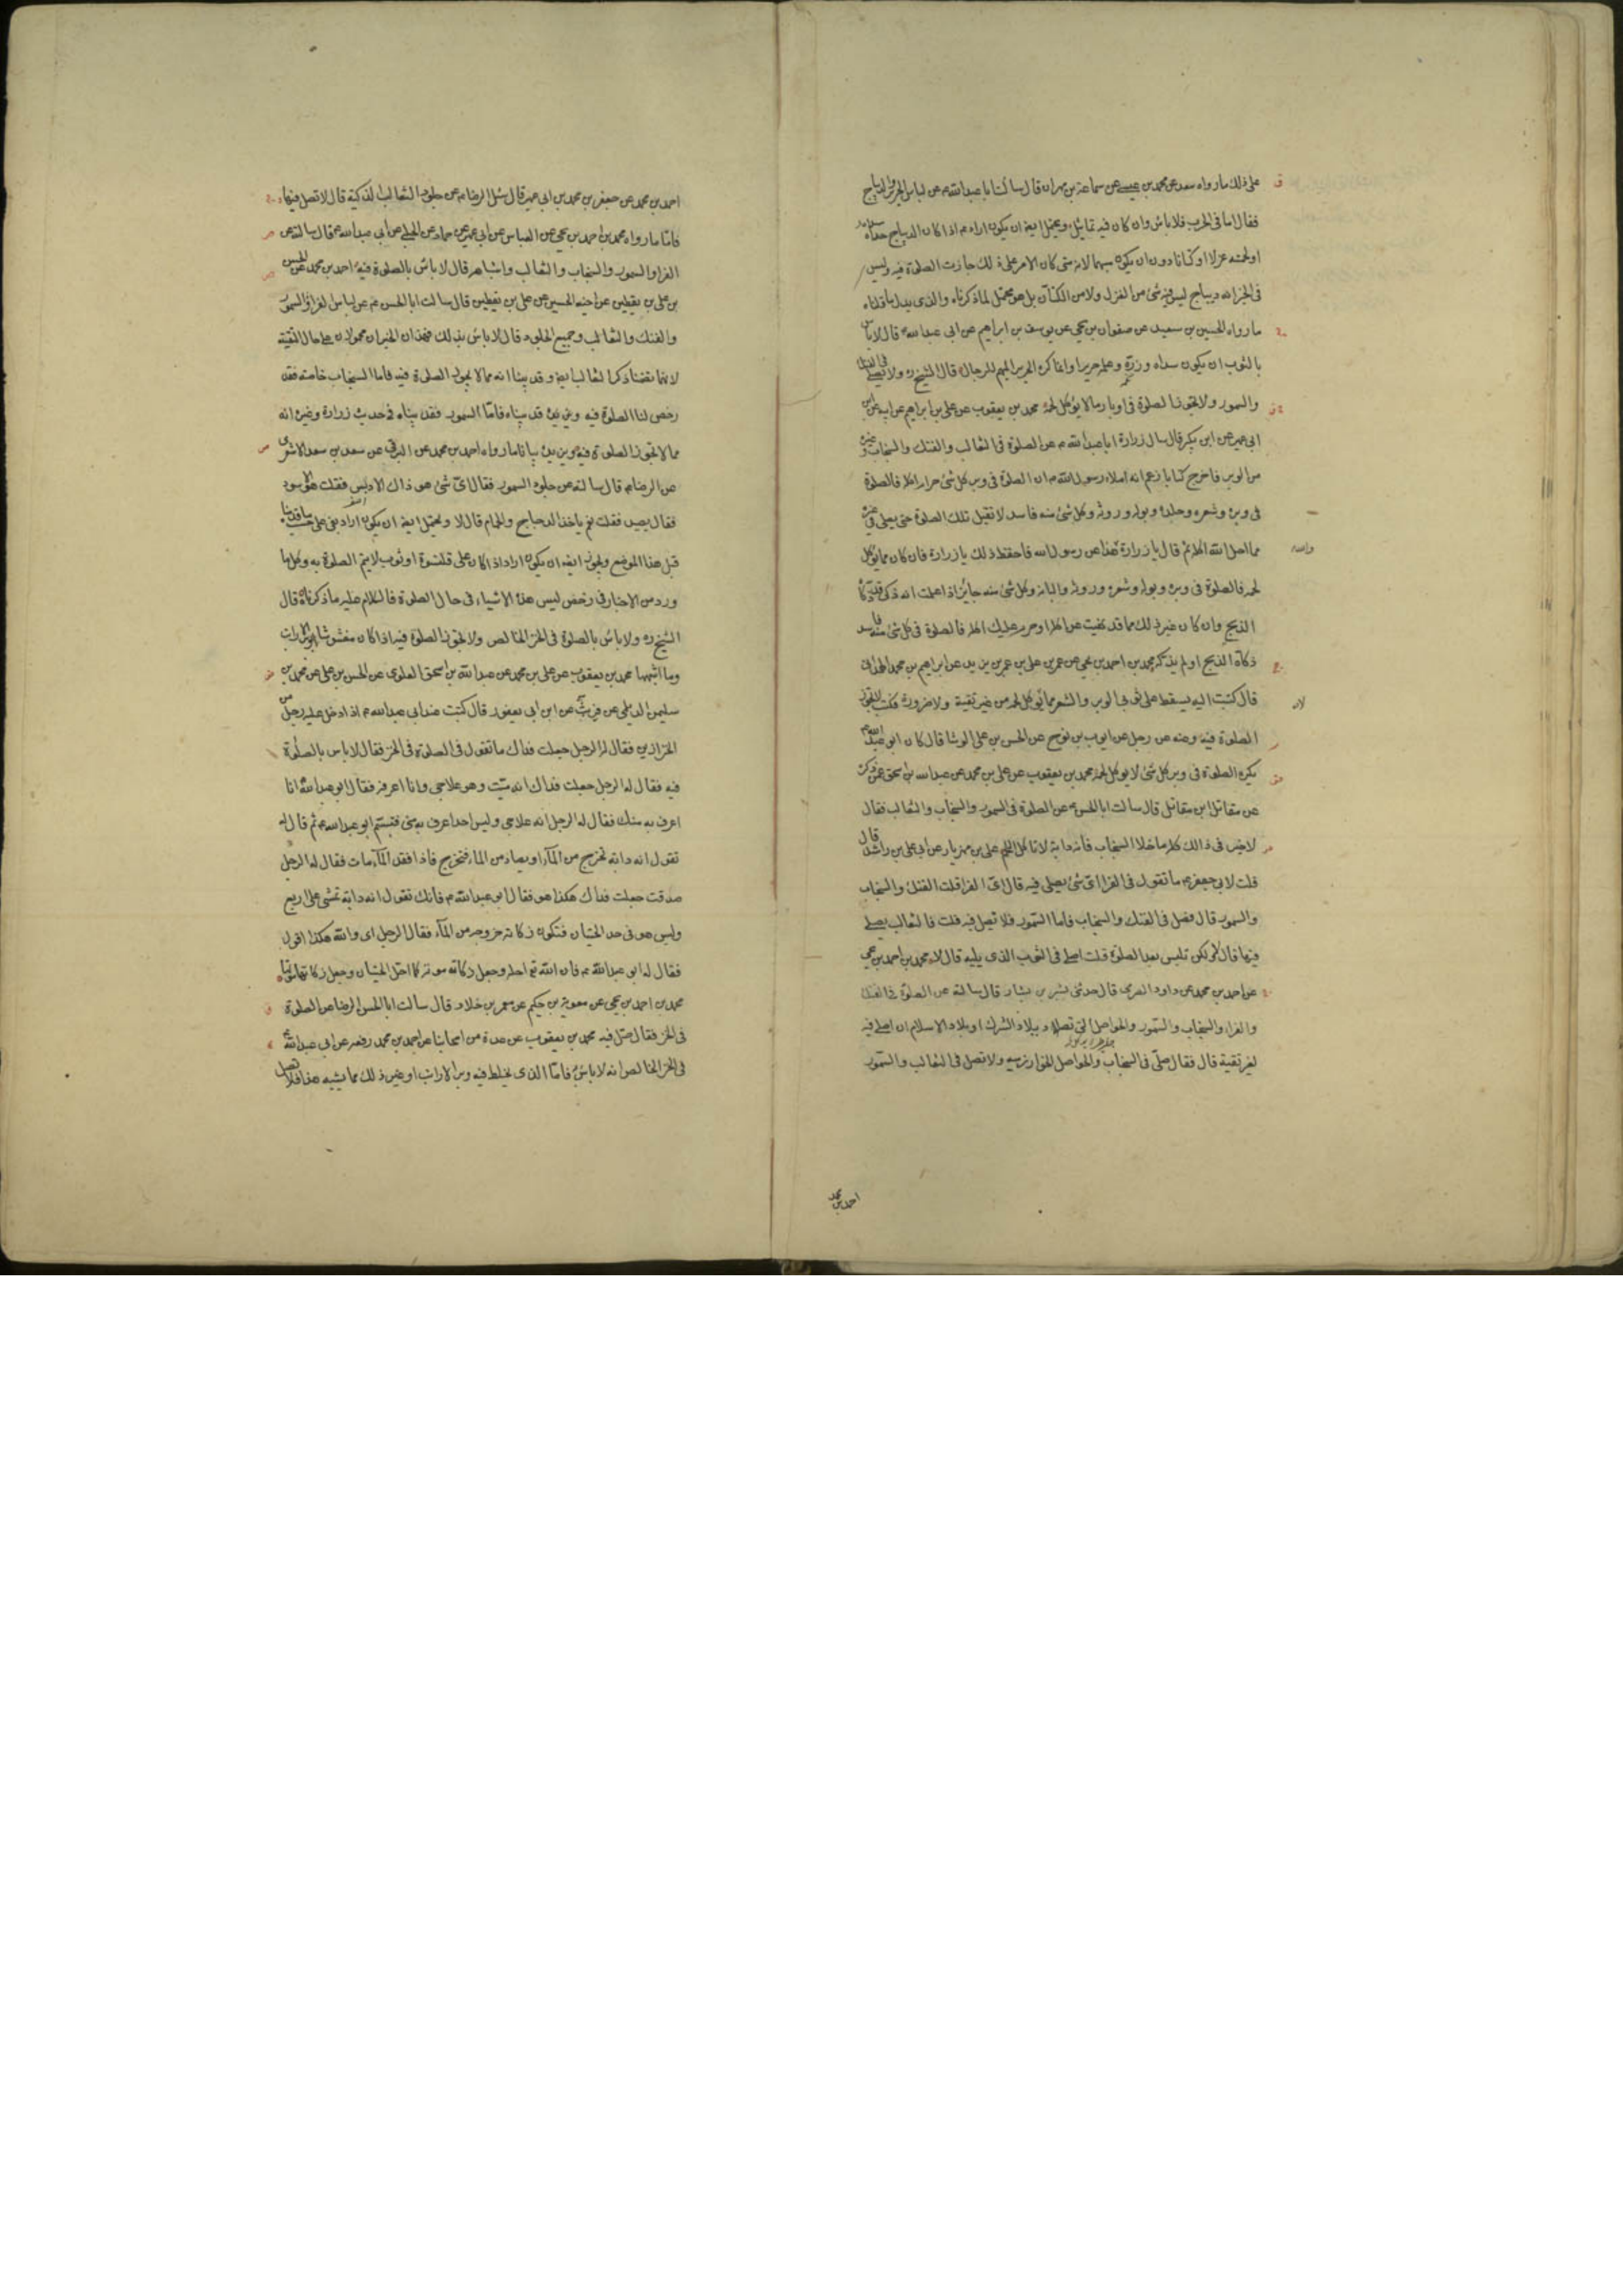 على ذلك ما رواه سعد عن محمد بن عيسى عن سماعة بن مهران قال سالت ابا عبد الله ع عن لباس الحرير والديباج
فقال اما فى الحرب فلا باس وان كان فيه تماثيل ويحتمل ايضا ان يكون اراد م اذا كان الديباج سداه
او لحمته غزلا او كتانا دون ان يكون مبهما لانه متى كان الامر على ذلك جازت الصلوة فيه وليس
فى الخبر انه ديباج ليس فيه شئ من الغزل ولا من الكتان بل هو محتمل لما ذكرناه والذى يدل على ما قلناه
ما رواه الحسين بن سعيد عن صفوان بن يحيى عن يوسف بن ابراهيم عن ابى عبد الله ع قال لا باس
بالثوب ان يكون سداه وزره وعلمه حريرا وانما كره الحرير المبهم للرجال قال الشيخ ره ولا يصلى فى الفنك
والسمور ولا تجوز الصلوة فى اوبار ما لا يؤكل لحمه محمد بن يعقوب عن على بن ابراهيم عن ابيه عن ابن
ابى عمير عن ابن بكير قال سال زرارة ابا عبد الله م عن الصلوة فى الثعالب والفنك والسنجاب وغيره
من الوبر فاخرج كتابا زعم انه املاء رسول الله ص ان الصلوة فى وبر كل شئ حرام اكله فالصلوة
فى وبره وشعره وجلده وبوله وروثه وكل شئ منه فاسد لا تقبل تلك الصلوة حتى يصلى فى غيره
مما احل الله اكله ثم قال يا زرارة هذا عن رسول الله فاحفظ ذلك يا زرارة فان كان مما يؤكل
لحمه فالصلوة فى وبره وبوله وشعره وروثه والبانه وكل شئ منه جائز اذا علمت انه ذكى قد ذكاه
الذبح وان كان غير ذلك مما قد نهيت عن اكله او حرم عليك اكله فالصلوة فى كل شئ منه فاسد
ذكاه الذبح او لم يذكه محمد بن احمد بن يحيى عن عمر بن على بن عمر بن يزيد عن ابراهيم بن محمد الهمدانى
قال كتبت اليه يسقط على ثوبى الوبر والشعر مما لا يؤكل لحمه من غير تقية ولا ضرورة فكتب لا تجوز
الصلوة فيه وعنه عن رجل عن ايوب بن نوح عن الحسن بن على الوشا قال كان ابو عبد الله ع
يكره الصلوة فى وبر كل شئ لا يؤكل لحمه محمد بن يعقوب عن على بن محمد عن عبد الله بن اسحق عمن ذكره
عن مقاتل ابن مقاتل قال سالت ابا الحسن ع عن الصلوة فى السمور والسنجاب والثعالب فقال
لا خير فى ذالك كله ما خلا السنجاب فانه دابة لا تاكل اللحم على بن مهزيار عن ابى على بن راشد قال
قلت لابى جعفر م ما تقول فى الفرا اى شئ يصلى فيه قال اى الفرا قلت الفنك والسنجاب
والسمور قال فصل فى الفنك والسنجاب فاما السمور فلا تصل فيه قلت فالثعالب يصلى
فيها قال لا ولكن تلبس بعد الصلوة قلت اصلى فى الثوب الذى يليه قال لا محمد بن احمد بن يحيى
عن احمد بن محمد عن داود الصرمى قال حدثنى بشر بن بشار قال سالته عن الصلوة فى الفنك
والفراء والسنجاب والسمور والحواصل التى تصاد ببلاد الشرك او بلاد الاسلام ان اصلى فيه
لغير تقية قال فقال صلى فى السنجاب والحواصل الخوارزمية ولا تصل فى الثعالب والسمور
احمد بن محمد
احمد بن محمد عن جعفر بن محمد بن ابى عمير قال سئل الرضا م عن جلود الثعالب الذكية قال لا تصل فيها
فاما ما رواه محمد بن احمد بن يحيى عن العباس عن ابن ابى عمير عن حماد عن الحلبى عن ابى عبد الله ع قال سالته عن
الفرا والسمور والسنجاب والثعالب واشباهه قال لا باس بالصلوة فيه احمد بن محمد عن الحسن
بن على بن يقطين عن اخيه الحسين عن على بن يقطين قال سالت ابا الحسن م عن لباس الفرا والسمور
والفنك والثعالب وجميع الجلود قال لا باس بذلك فهذان الخبران محمولان على حال التقية
لانهما تضمنا ذكر الثعالب ايضا وقد بينا انه مما لا يجوز الصلوة فيه فاما السنجاب خاصة فقد
رخص لنا الصلوة فيه وقد بيناه فاما السمور فقد بيناه فى حديث زرارة وغيره انه
مما لا تجوز الصلوة فيه ويزيده بيانا ما رواه احمد بن محمد عن البرقى عن سعد بن سعد الاشعرى
عن الرضا م قال سالته عن جلود السمور فقال اى شئ هو ذاك الادبس فقلت هو الاسود
فقال يصيد فقلت نعم ياخذ الدجاج والحمام قال لا ويحتمل ايضا ان يكون اراد على حسب ما قدمنا
قبل هذا الموضع ويجوز ايضا ان يكون اراد اذا كان على قلنسوة او ثوب لا يتم الصلوة به وكل ما
ورد من الاخبار فى رخص لبس هذه الاشياء فى حال الصلوة فالكلام عليه ما ذكرناه قال
الشيخ ره ولا باس بالصلوة فى الخز الخالص ولا تجوز الصلوة فيه اذا كان مغشوشا بوبر الارانب
وما اشبهها محمد بن يعقوب عن على بن محمد عن عبد الله بن اسحق العلوى عن الحسن بن على عن محمد بن
سليمن الديلمى عن فريث عن ابن ابى يعفور قال كنت عند ابى عبد الله م اذ ادخل عليه رجل من
الخزازين فقال له الرجل جعلت فداك ما تقول فى الصلوة فى الخز فقال لا باس بالصلوة
فيه فقال له الرجل جعلت فداك انه ميت وهو علاجى وانا اعرفه فقال ابو عبد الله انا
اعرف به منك فقال له الرجل انه علاجى وليس احد اعرف به منى فتبسم ابو عبد الله ع ثم قال له
تقول انه دابة تخرج من الماء او يصاد من الماء فتخرج فاذا فقد الماء مات فقال له الرجل
صدقت جعلت فداك هكذا هو فقال ابو عبد الله م فانك تقول انه دابة تمشى على اربع
وليس هو فى حد الحيتان فتكون ذكاته خروجه من الماء فقال الرجل اى والله هكذا اقول
فقال له ابو عبد الله م فان الله تع احله وجعل ذكاته موته كما احل الحيتان وجعل ذكاتها موتها
محمد بن احمد بن يحيى عن معوية بن حكيم عن معمر بن خلاد قال سالت ابا الحسن الرضا عن الصلوة
فى الخز فقال صل فيه محمد بن يعقوب عن عدة من اصحابنا عن احمد بن محمد رفعه عن ابى عبد الله ع
فى الخز الخالص انه لا باس به فاما الذى يخلط فيه وبر الارانب او غير ذلك مما يشبه هذا فلا تصل